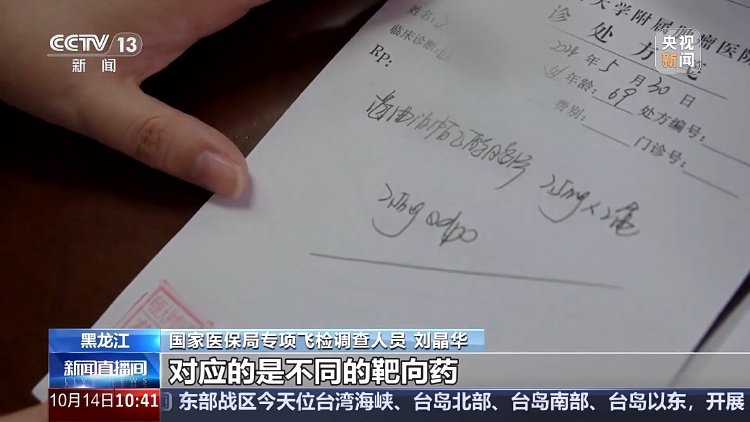 CCTV 13
新闻
央视
新闻
大学附属肿瘤医院
诊处方笺
姓名:
2024年5月30日
临床诊断:
女 年龄:69 处方编号:
Rp:
费别: 门诊号:
25mg×2盒
25mg qd po
黑龙江
国家医保局专项飞检调查人员 刘晶华
新闻直播间
对应的是不同的靶向药
10月14日10:41
东部战区今天位台湾海峡、台岛北部、台岛南部、台岛以东,开展